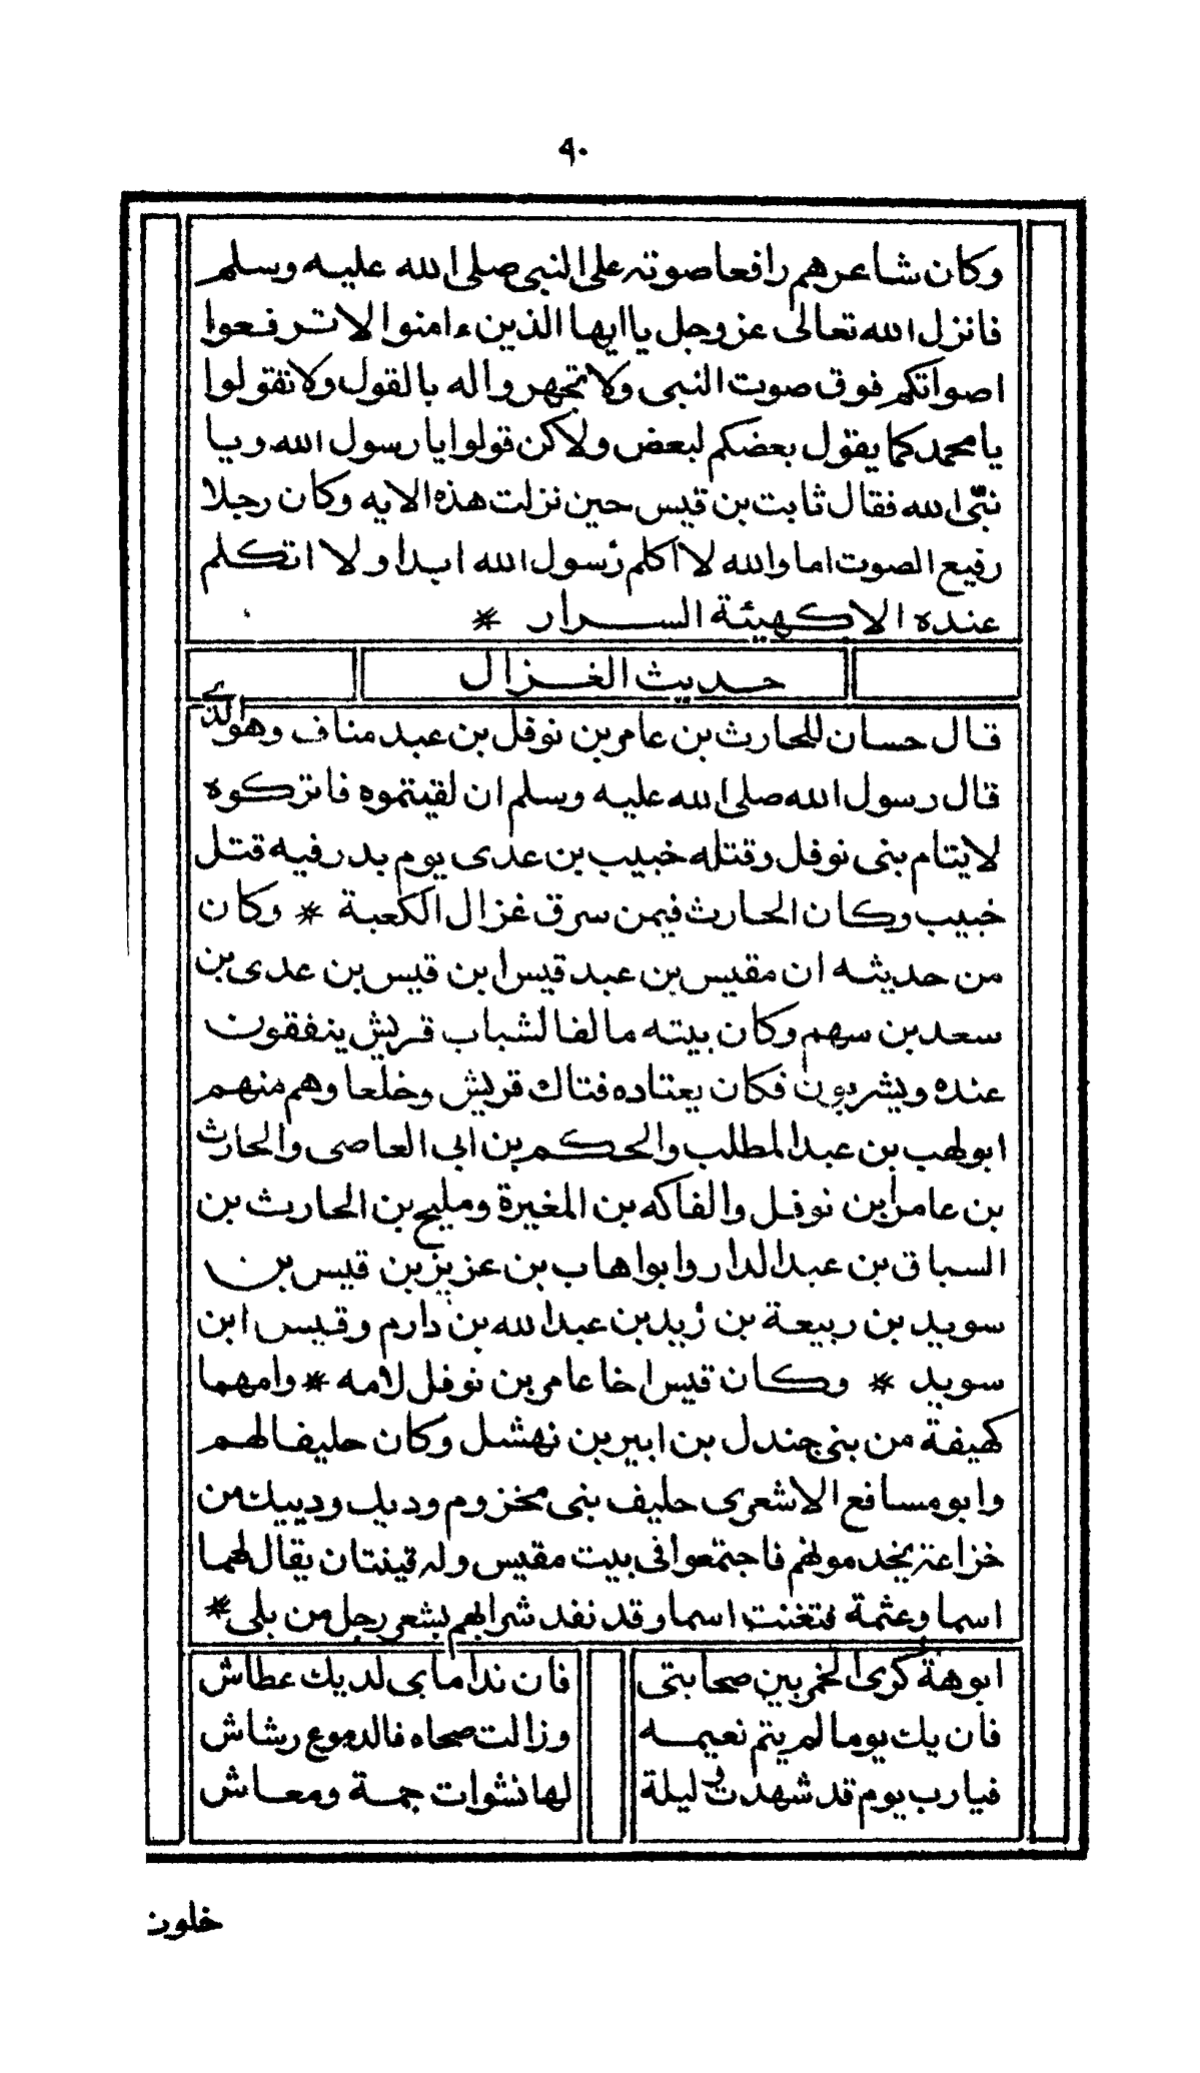 ٩٠
وكان شاعرهم رافعا صوته على النبي صلى الله عليه وسلم
فانزل الله تعالى عز وجل ياايها الذين ءامنوا لا ترفعوا
اصواتكم فوق صوت النبى ولا تجهروا له بالقول ولا تقولوا
يا محمد كما يقول بعضكم لبعض ولاكن قولوا يا رسول الله ويا
نبّى الله فقال ثابت بن قيس حين نزلت هذه الايه وكان رجلا
رفيع الصوت اما والله لا اكلم رسول الله ابدا ولا اتكلم
عنده الا كهيئة السرار *
حديث الغزال
قال حسان للحارث بن عامر بن نوفل بن عبد مناف وهو الذي
قال رسول الله صلى الله عليه وسلم ان لقيتموه فاتركوه
لايتام بنى نوفل وقتله خبيب بن عدى يوم بدر فيه قتل
خبيب وكان الحارث فيمن سرق غزال الكعبة * وكان
من حديثه ان مقيس بن عبد قيس ابن قيس بن عدى بن
سعد بن سهم وكان بيته مالفا لشباب قريش ينفقون
عنده ويشربون فكان يعتاده فتاك قريش وخلعا وهم منهم
ابو لهب بن عبد المطلب والحكم بن ابى العاصى والحارث
بن عامر ابن نوفل والفاكه بن المغيرة ومليح بن الحارث بن
السباق بن عبد الدار وابو اهاب بن عزيز بن قيس بن
سويد بن ربيعة بن زيد بن عبد الله بن دارم وقيس ابن
سويد * وكان قيس اخا عامر بن نوفل لامه * وامهما
كهيفة من بنى جندل بن ابير بن نهشل وكان حليفا لهم
وابو مسافع الاشعرى حليف بنى مخزوم وديك ودييك من
خزاعة يخدمونهم فاجتمعوا فى بيت مقيس وله قينتان يقال لهما
اسما وعثمة فتغنت اسما وقد نفد شرابهم بشعر رجل من بلى *
ابوهة كرى الخمر بين صحابتى فان نداماى لديك عطاش
فان يك يوما لم يتم نعيمه وزالت صحاه فالدموع رشاش
فيا رب يوم قد شهدت وليلة لها نشوات جمة ومعاش
خلون